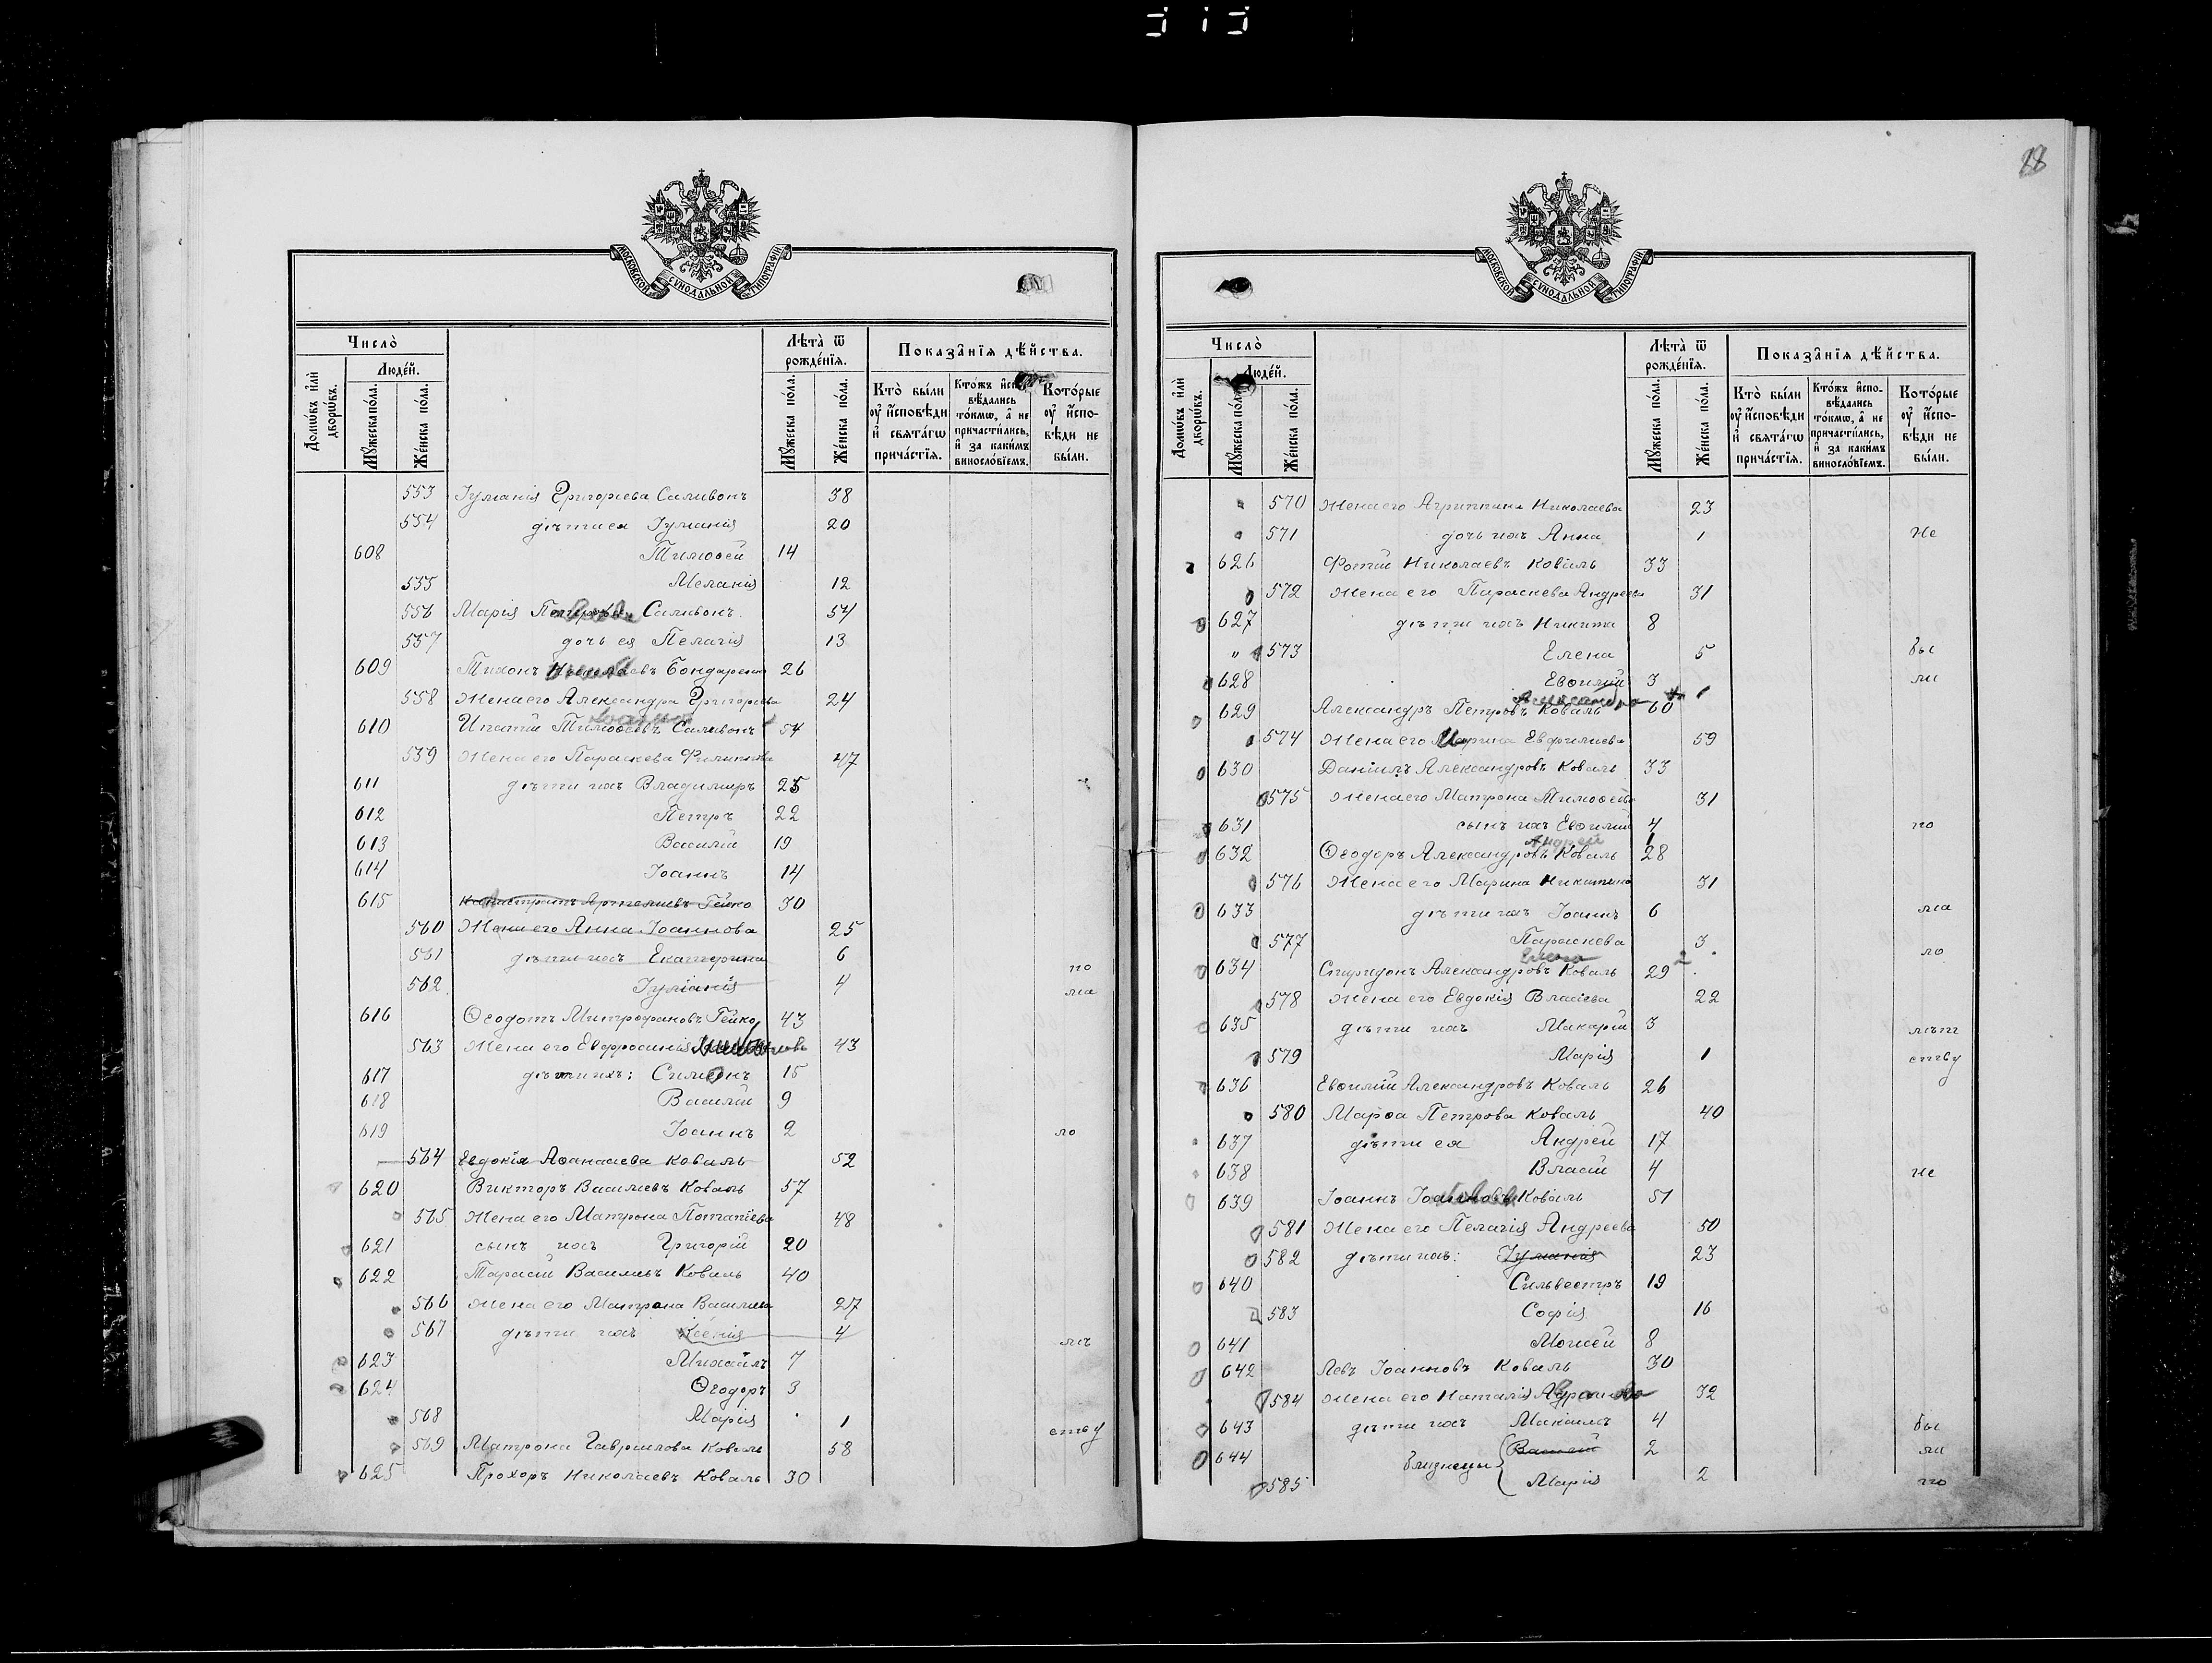 28
МОСКОВСКОЙ СѴНОДАЛЬНОЙ ТИПОГРАФІИ
Число̀
Люде́й.
Домѡ́въ и҆лѝ дворѡ́въ.
Мꙋ́жеска по́ла.
Же́нска по́ла.
Лѣта̀ ѿ рожде́нїѧ.
Мꙋ́жеска по́ла.
Же́нска по́ла.
Показа̑нїѧ дѣ́йства.
Кто̀ бы́ли ᲂу҆ и҆сповѣди и҆ свѧта́гѡ прича́стїѧ.
Кто́жъ и҆сповѣ́дались то́кмѡ, а҆ не причасти́лись, и҆ за каки́мъ винослѡ́вїемъ.
Кото́рые ᲂу҆ и҆сповѣди не бы́ли.
553 Іуліанія Григоріева Саливонъ 38
554 дѣти ея Іуліанія 20
608 Тимоѳей 14
555 Меланія 12
556 Марія Саливонъ. 54
557 дочь ея Пелагія 13
609 Тихонъ Бондаренко 26
558 Жена его Александра Григорьева 24
610 Игнатій Тимоѳеевъ Саливонъ 54
559 Жена его Параскева Филиппова 47
611 дѣти ихъ Владимиръ 25
612 Петръ 22
613 Василій 19
614 Іоаннъ 14
615 Гейко 30
560 Жена его Анна Іоаннова 25
561 дѣти ихъ Екатерина 6 по
562 Іуліанія 4 ма
616 Ѳеодотъ Митрофановъ Гейко 43
563 Жена его Евфросинія 43
617 дѣти ихъ: Симеонъ 15
618 Василій 9
619 Іоаннъ 2 ло
564 Евдокія Аѳанасіева Коваль 52
620 Викторъ Васильевъ Коваль 57
565 Жена его Матрона Потапіева 48
621 сынъ ихъ Григорій 20
622 Тарасій Васильевъ Коваль 40
566 Жена его Матрона Васильева 27
567 дѣти ихъ Ксенія 4 лѣ
623 Михаилъ 7
624 Ѳеодоръ 3
568 Марія 1 ству
569 Матрона Гавриилова Коваль 58
625 Прохоръ Николаевъ Коваль 30
МОСКОВСКОЙ СѴНОДАЛЬНОЙ ТИПОГРАФІИ
Число̀
Люде́й.
Домѡ́въ и҆лѝ дворѡ́въ.
Мꙋ́жеска по́ла.
Же́нска по́ла.
Лѣта̀ ѿ рожде́нїѧ.
Мꙋ́жеска по́ла.
Же́нска по́ла.
Показа̑нїѧ дѣ́йства.
Кто̀ бы́ли ᲂу҆ и҆сповѣди и҆ свѧта́гѡ прича́стїѧ.
Кто́жъ и҆сповѣ́дались то́кмѡ, а҆ не причасти́лись, и҆ за каки́мъ винослѡ́вїемъ.
Кото́рые ᲂу҆ и҆сповѣди не бы́ли.
570 Жена его Агриппина Николаева 23
571 дочь ихъ Анна 1 не
626 Фотій Николаевъ Коваль 33
572 Жена его Параскева Андреева 31
627 дѣти ихъ Никита 8
" 573 Елена 5 бы
628 Евѳимій 3 ли
Александра 1
629 Александръ Петровъ Коваль 60
574 Жена его Марина 59
630 Даніилъ Александровъ Коваль 33
575 Жена его Матрона Тимоѳеева 31
631 сынъ ихъ Евѳимій 4 по
Андрей 1
632 Ѳеодоръ Александровъ Коваль 28
576 Жена его Марина Никитина 31
633 дѣти ихъ Іоаннъ 6 ма
577 Параскева 3
Елена 2 ло
634 Спиридонъ Александровъ Коваль 29
578 Жена его Евдокія Власіева 22
635 дѣти ихъ Макарій 3 лѣт
579 Марія 1 ству
636 Евѳимій Александровъ Коваль 26
580 Марѳа Петрова Коваль 40
637 дѣти ея Андрей 17
638 Власій 4 не
639 Іоаннъ Коваль 51
581 Жена его Пелагія Андреева 50
582 дѣти ихъ: Іуліанія 23
640 Сильвестръ 19
583 Софія 16
641 Моисей 8
642 Левъ Іоанновъ Коваль 30
584 Жена его Наталія 32
643 дѣти ихъ Михаилъ 4 бы
644 близнецы Василій 2 ли
585 Марія 2 по